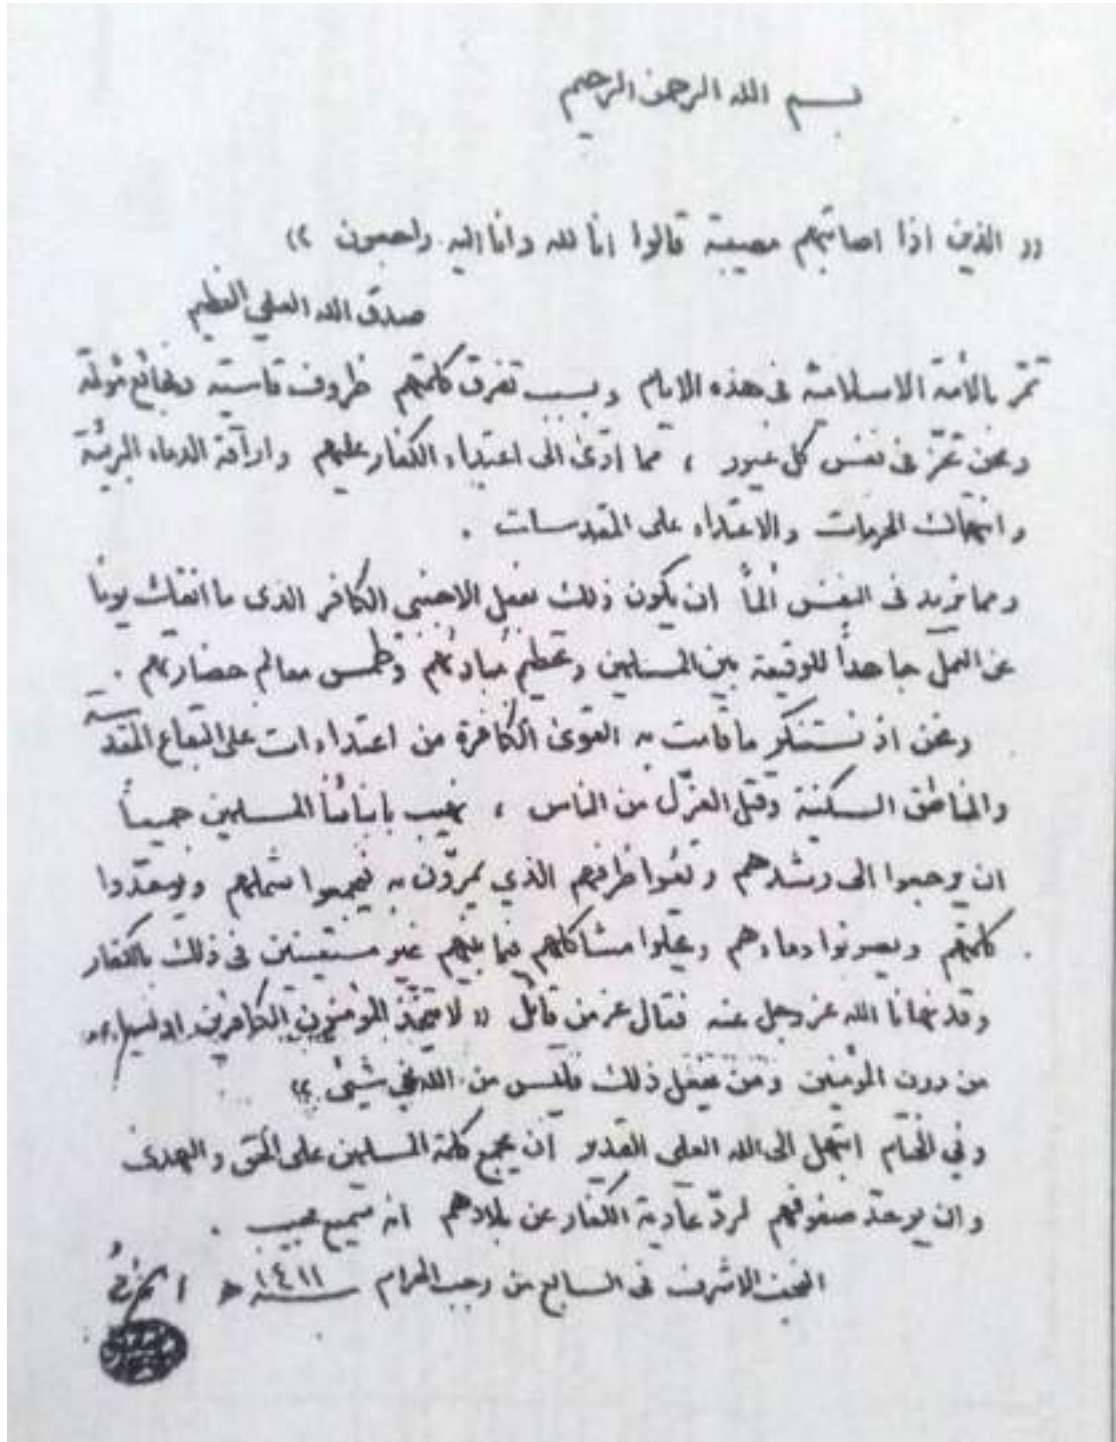 بسم الله الرحمن الرحيم
(( الذين اذا اصابتهم مصيبة قالوا انا لله وانا اليه راجعون ))
صدق الله العلي العظيم
تمّر بالأمة الاسلامية في هذه الايام وبسبب تفرق كلمتهم ظروف قاسية وفجائع مؤلمة
ومحن تحزّ في نفس كل غيور ، مما ادّى الى اعتداء الكفار عليهم واراقة الدماء البريئة
وانتهاك الحرمات والاعتداء على المقدسات .
ومما يزيد في النفس ألماً ان يكون ذلك بفعل الاجنبي الكافر الذي ما انفك يوماً
عن العمل جاهداً للوقيعة بين المسلمين وتحطيم مبادئهم وطمس معالم حضارتهم .
ونحن اذ نستنكر ما قامت به القوى الكافرة من اعتداءات على البقاع المقدسة
والمناطق السكنية وقتل العزّل من الناس ، نهيب بابنائنا المسلمين جميعاً
ان يرجعوا الى رشدهم ويعوا ظرفهم الذي يمرّون به فيجمعوا شملهم ويوحّدوا
كلمتهم ويصونوا دماءهم ويحلوا مشاكلهم فيما بينهم غير مستعينين في ذلك بالكفار
وقد نهانا الله عز وجل عنه فقال عز من قائل (( لا يتخذ المؤمنون الكافرين اولياء
من دون المؤمنين ومن يفعل ذلك فليس من الله في شيئ ))
وفي الختام ابتهل الى الله العلي القدير أن يجمع كلمة المسلمين على الحق والهدى
وان يوحّد صفوفهم لردّ عادية الكفار عن بلادهم انه سميع مجيب .
النجف الاشرف في السابع من رجب الحرام سنة ١٤١١ هـ